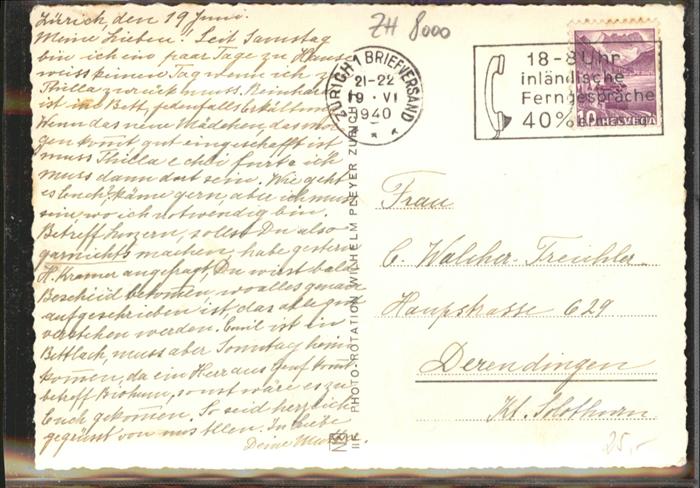 Zürich, den 19 Juni.
Meine Lieben! Seit Samstag
bin ich ein paar Tage zu Hause
weiss keinen Tag wenn ich z.
zurück muss. Reinhard
ist im Bett, jedenfalls Erkältung
Wenn das neue Mädchen, das mor-
gen komt, gut eingeschafft ist
muss fort & ich
muss dann dort sein. Wie geht
es Euch? käme gern, aber ich muss
sein, wo ich notwendig bin.
Betreff Luzern, sollst Du also
garnichts machen, habe gestern
H. Kramer angefragt, Du wirst bald
Bescheid bekomen, wo alles genau
aufgeschrieben ist, das
verstehen werden. Emil ist in
Bettlach, muss aber Sonntag heim
komen, da ein Herr aus Genf komt
betreff sonst wäre es zu
Euch gekomen. So seid herzlich
gegrüsst von uns Allen. In Liebe
Deine Mutter.
ZH 8000
ZÜRICH 1 BRIEFVERSAND
21-22
19 · VI
1940
18-8 Uhr
inländische
Ferngespräche
40%
HELVETIA
PHOTO-ROTATION WILHELM PLEYER ZÜRICH
Frau
C. Walcher-Treichler
Hauptstrasse 629
Derendingen
Kt. Solothurn
25,-